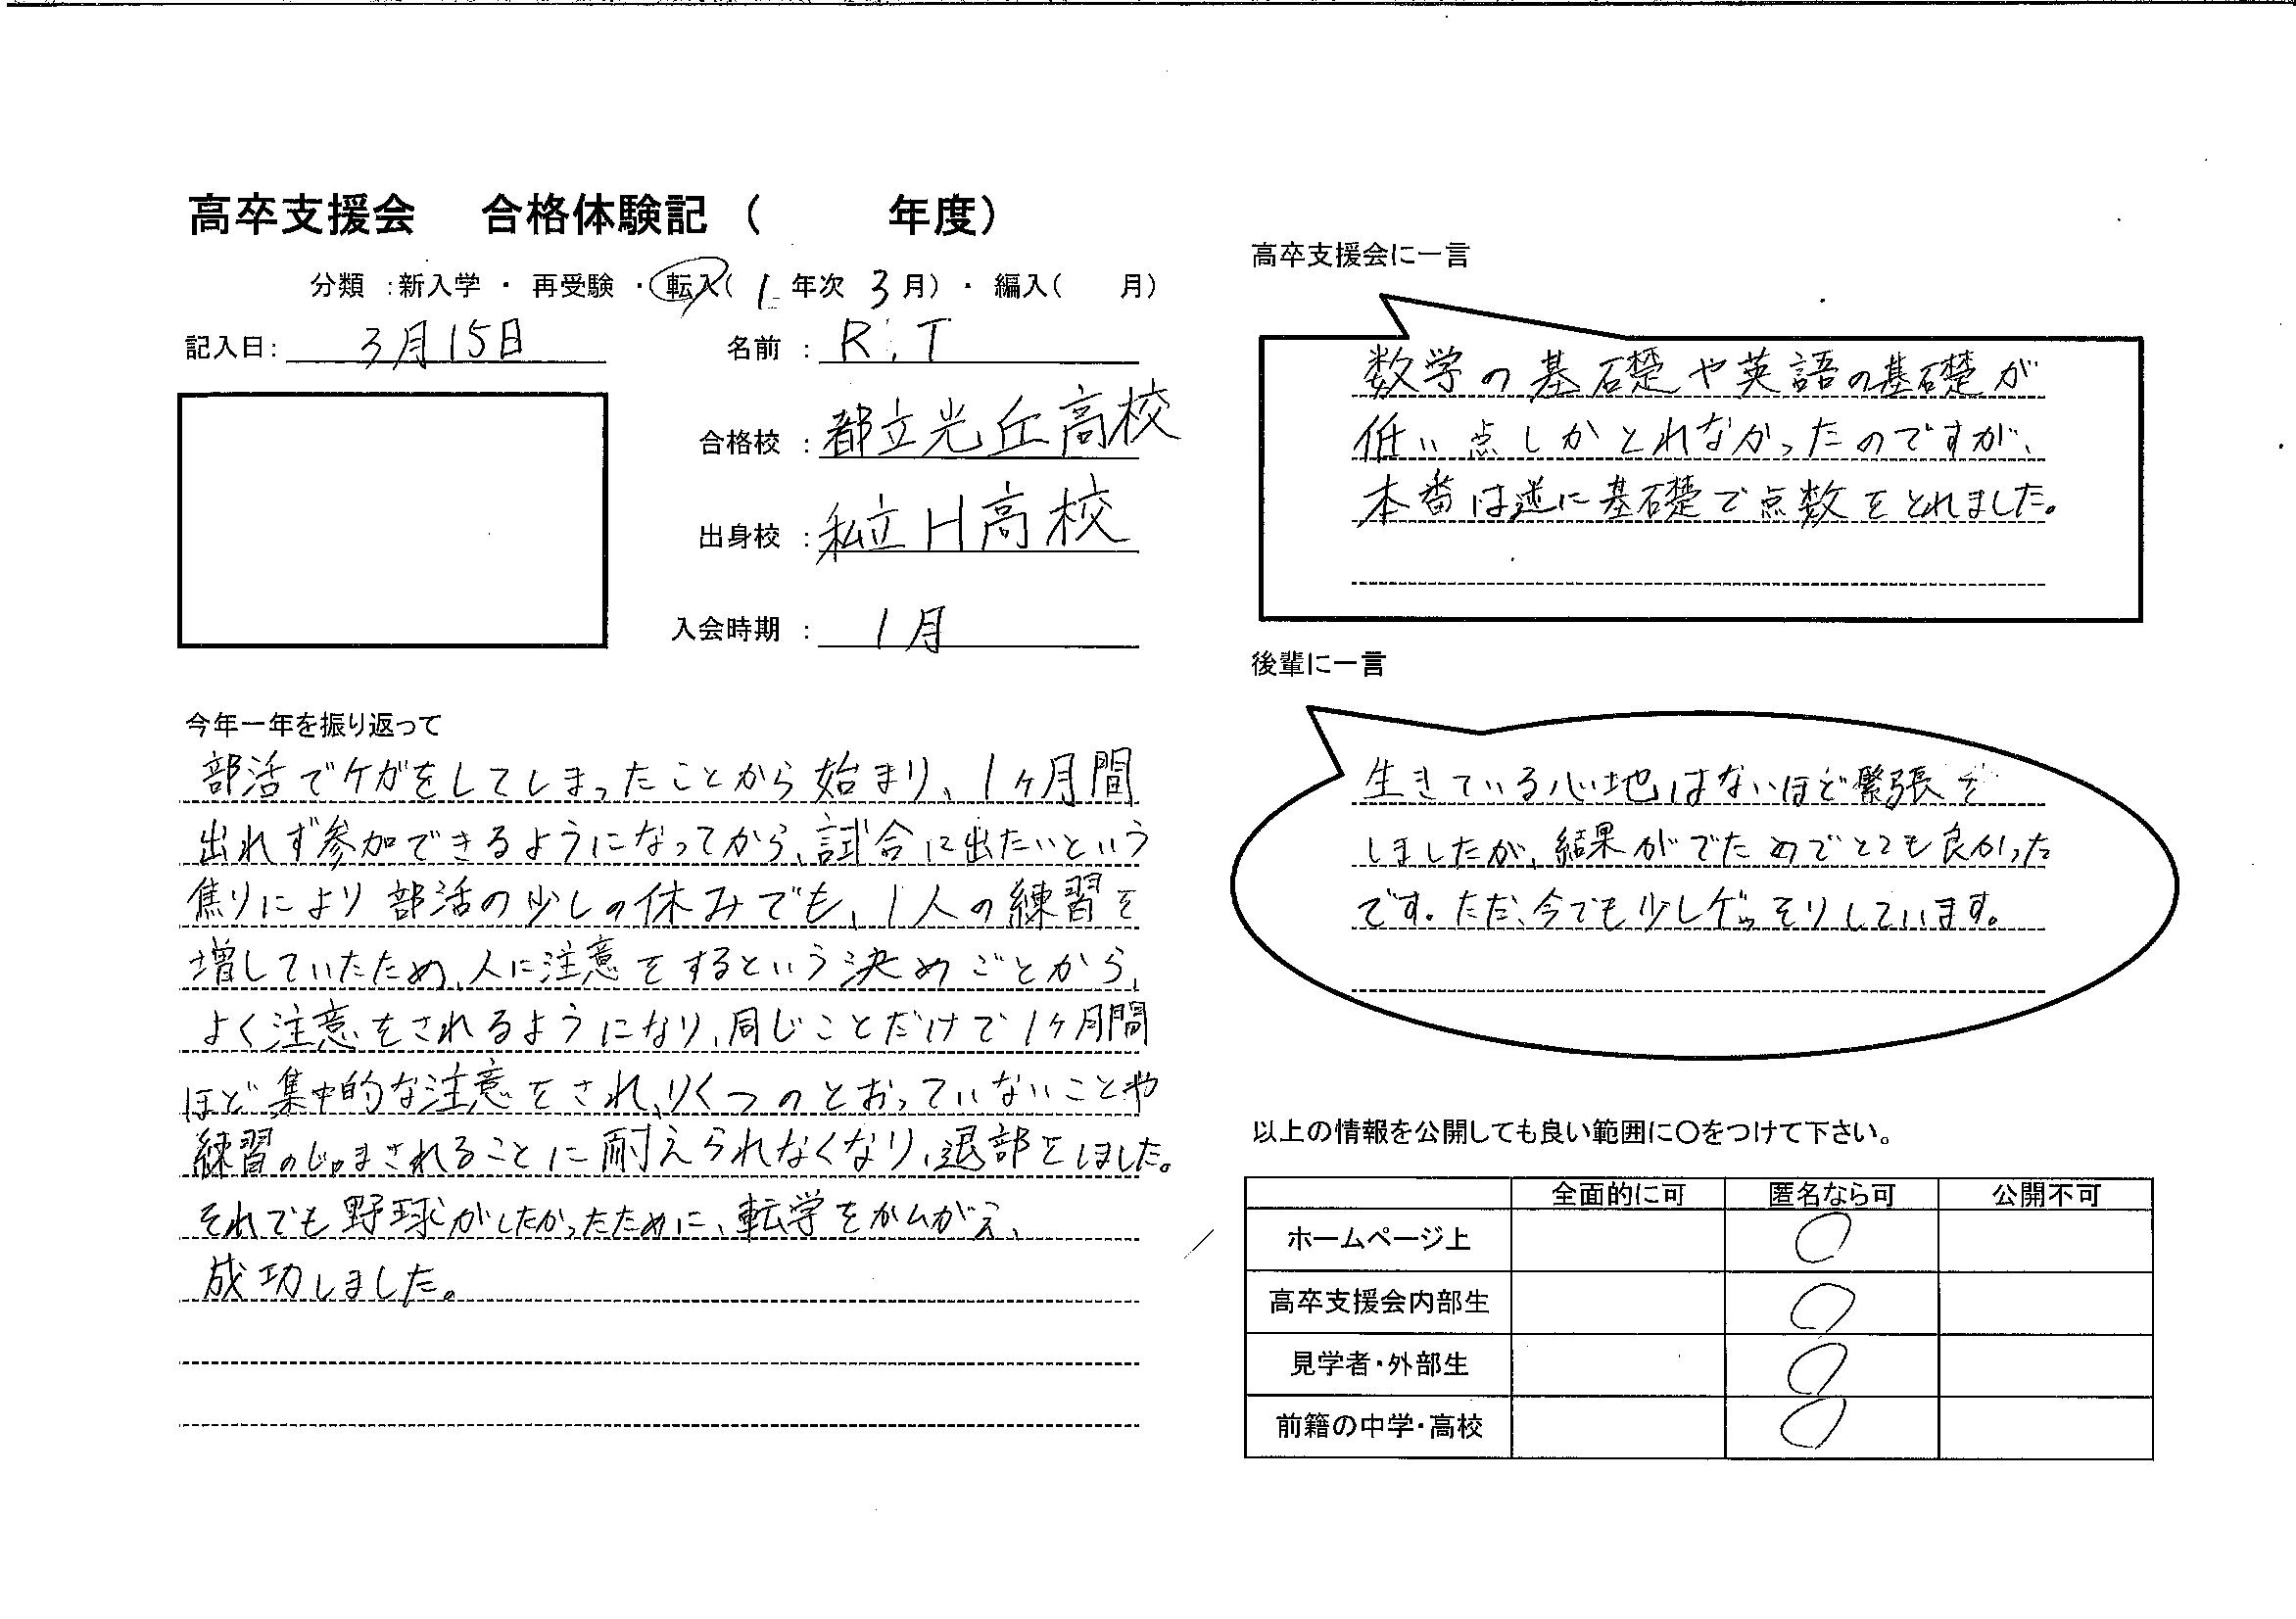 高卒支援会　合格体験記（　　　年度）
分類：新入学・再受験・転入(1年次3月)・編入(　　月)
記入日：3月15日
名前：R.T
合格校：都立光丘高校
出身校：私立H高校
入会時期：1月
今年一年を振り返って
部活でケガをしてしまったことから始まり、1ヶ月間
出れず参加できるようになってから、試合に出たいという
焦りにより部活の少しの休みでも、1人の練習を
増していたため、人に注意をするという決めごとから、
よく注意をされるようになり、同じことだけで1ヶ月間
ほど集中的な注意をされ、りくつのとおっていないことや
練習のじゃまされることに耐えられなくなり、退部をしました。
それでも野球がしたかったために、転学をかんがえ、
成功しました。
高卒支援会に一言
数学の基礎や英語の基礎が
低い点しかとれなかったのですが、
本番は逆に基礎で点数をとれました。
後輩に一言
生きている心地はないほど緊張を
しましたが、結果がでためでとても良かった
です。ただ、今でも少しゲッソリしています。
以上の情報を公開しても良い範囲に〇をつけて下さい。
全面的に可　匿名なら可　公開不可
ホームページ上　〇
高卒支援会内部生　〇
見学者・外部生　〇
前籍の中学・高校　〇